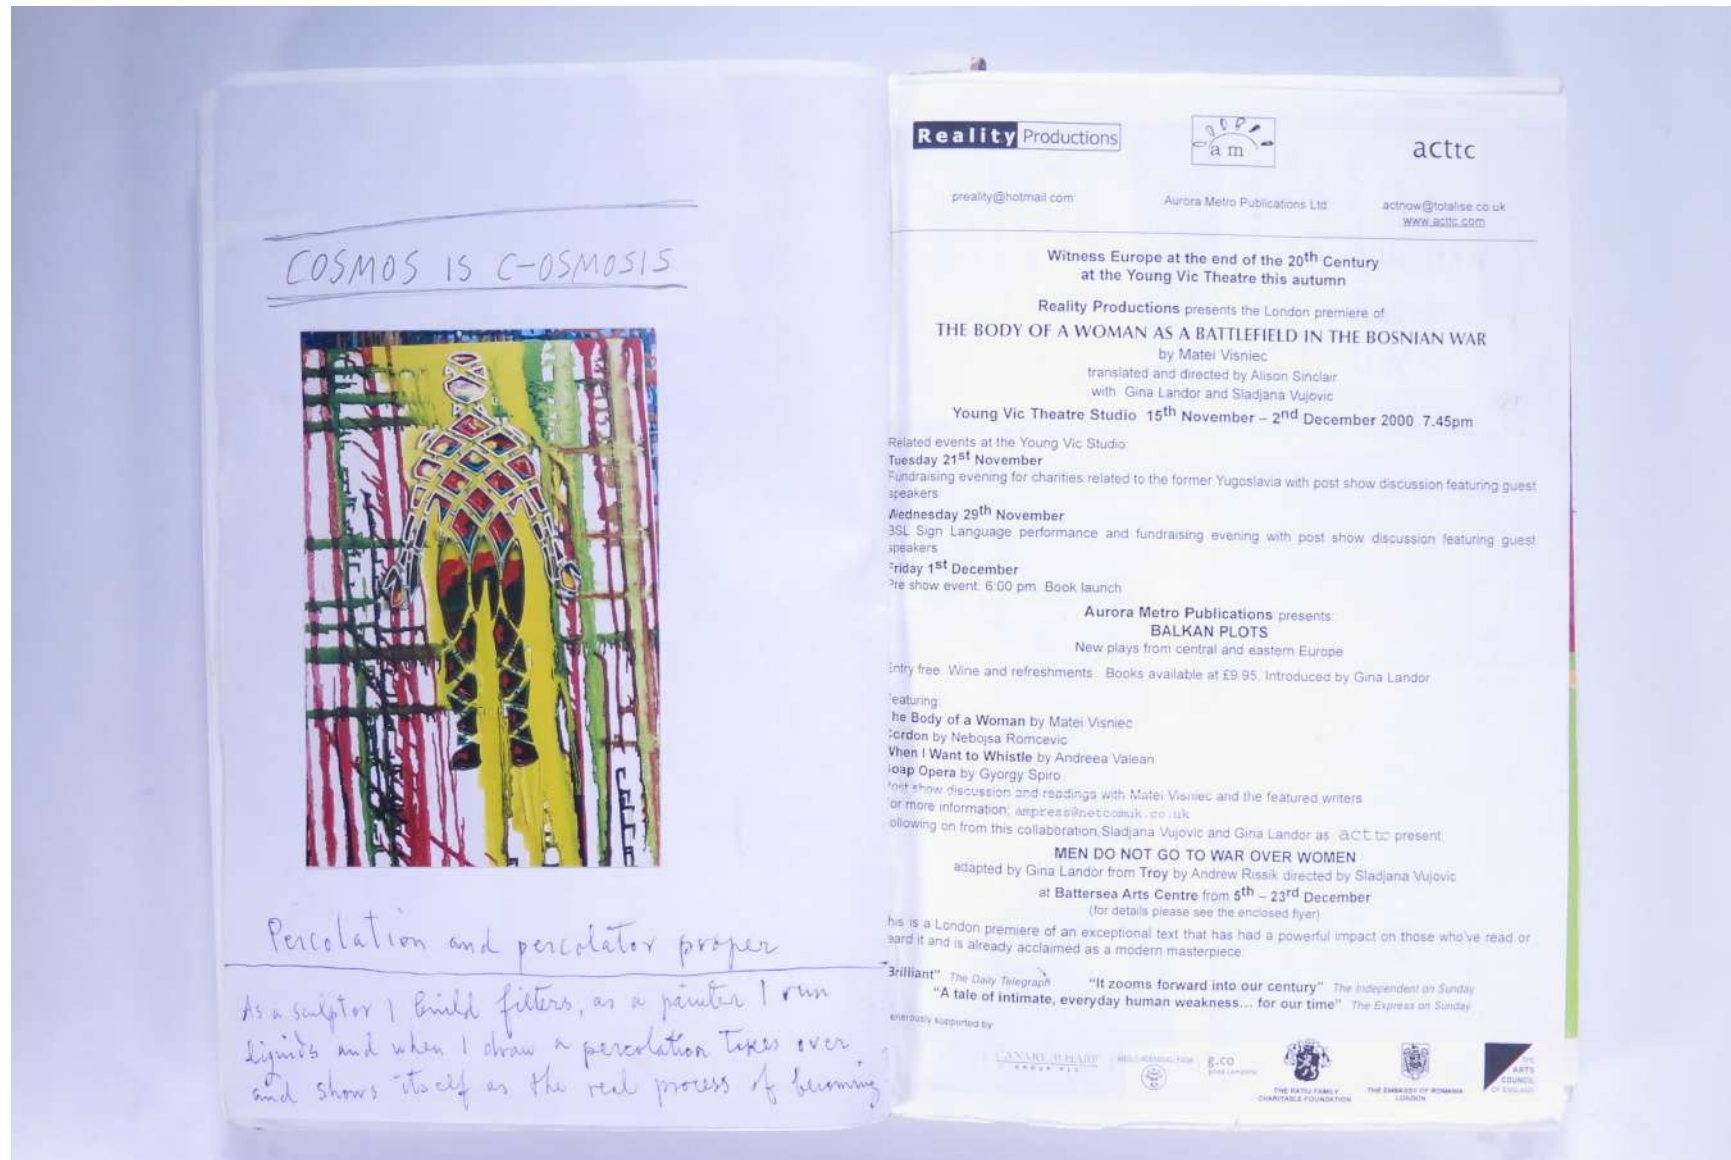 COSMOS IS C-OSMOSIS
Percolation and percolator proper
As a sculptor I build filters, as a painter I run
liquids and when I draw a percolation takes over
and shows itself as the real process of becoming
Reality Productions
am
acttc
preality@hotmail.com
Aurora Metro Publications Ltd
actnow@totalise.co.uk
www.acttc.com
Witness Europe at the end of the 20th Century
at the Young Vic Theatre this autumn
Reality Productions presents the London premiere of
THE BODY OF A WOMAN AS A BATTLEFIELD IN THE BOSNIAN WAR
by Matei Visniec
translated and directed by Alison Sinclair
with Gina Landor and Sladjana Vujovic
Young Vic Theatre Studio 15th November – 2nd December 2000 7.45pm
Related events at the Young Vic Studio:
Tuesday 21st November
Fundraising evening for charities related to the former Yugoslavia with post show discussion featuring guest
speakers
Wednesday 29th November
BSL Sign Language performance and fundraising evening with post show discussion featuring guest
speakers
Friday 1st December
Pre show event: 6:00 pm Book launch
Aurora Metro Publications presents:
BALKAN PLOTS
New plays from central and eastern Europe
Entry free. Wine and refreshments. Books available at £9.95. Introduced by Gina Landor
eaturing:
he Body of a Woman by Matei Visniec
ordon by Nebojsa Romcevic
When I Want to Whistle by Andreea Valean
oap Opera by Gyorgy Spiro
ost show discussion and readings with Matei Visniec and the featured writers
or more information: ampress@netcomuk.co.uk
ollowing on from this collaboration, Sladjana Vujovic and Gina Landor as acttc present
MEN DO NOT GO TO WAR OVER WOMEN
adapted by Gina Landor from Troy by Andrew Rissik directed by Sladjana Vujovic
at Battersea Arts Centre from 5th – 23rd December
(for details please see the enclosed flyer)
his is a London premiere of an exceptional text that has had a powerful impact on those who've read or
eard it and is already acclaimed as a modern masterpiece.
Brilliant" The Daily Telegraph "It zooms forward into our century" The Independent on Sunday
"A tale of intimate, everyday human weakness... for our time" The Express on Sunday
enerously supported by:
CANARY WHARF
GROUP PLC
g.co
THE RATIU FAMILY
CHARITABLE FOUNDATION
THE EMBASSY OF ROMANIA
LONDON
THE
ARTS
COUNCIL
OF ENGLAND